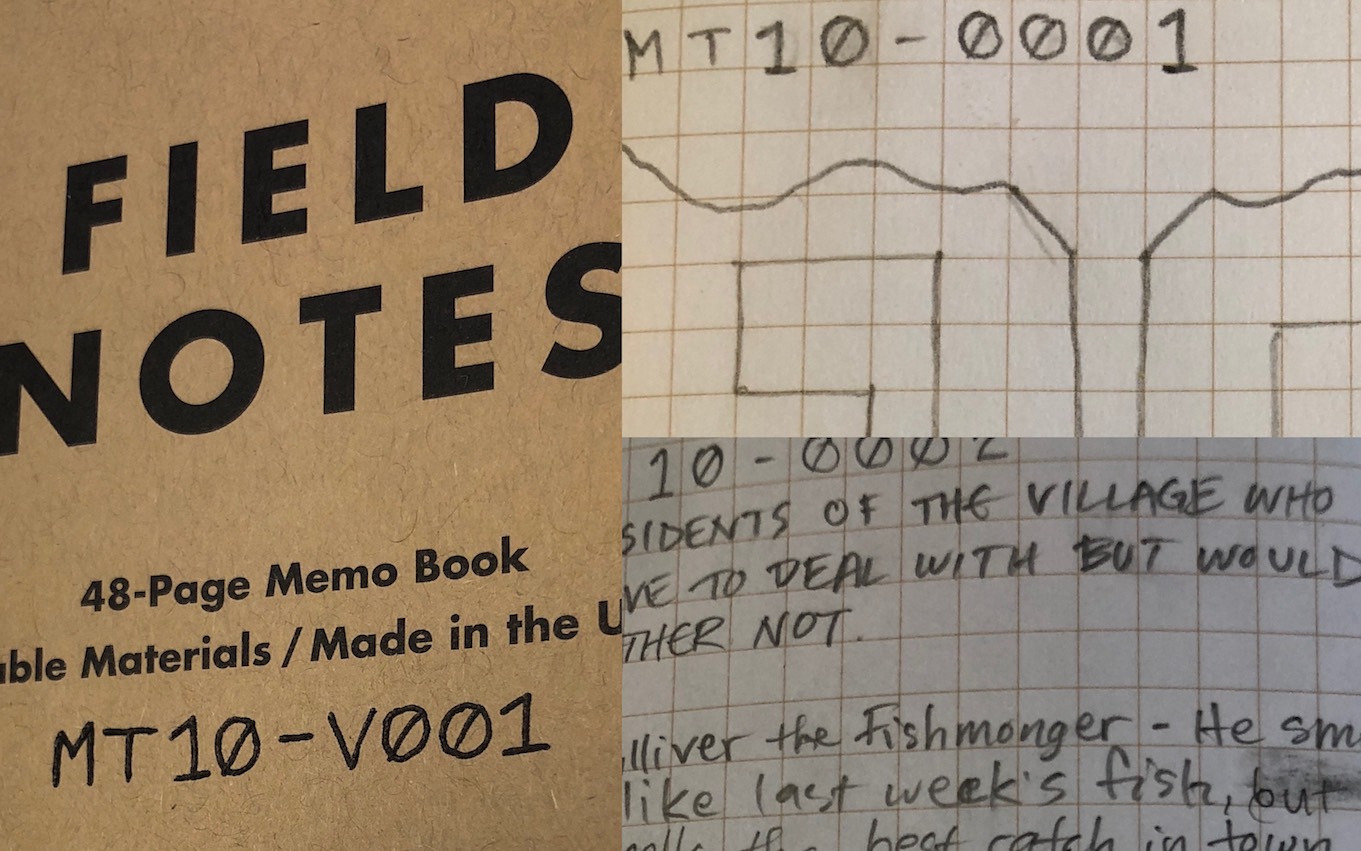 FIELD
NOTES
48-Page Memo Book
able Materials / Made in the U
MT10-V001
MT10-0001
10-0002
SIDENTS OF THE VILLAGE WHO
VE TO DEAL WITH BUT WOULD
THER NOT.
lliver the Fishmonger - He sm
like last week's fish, but
the best catch in town